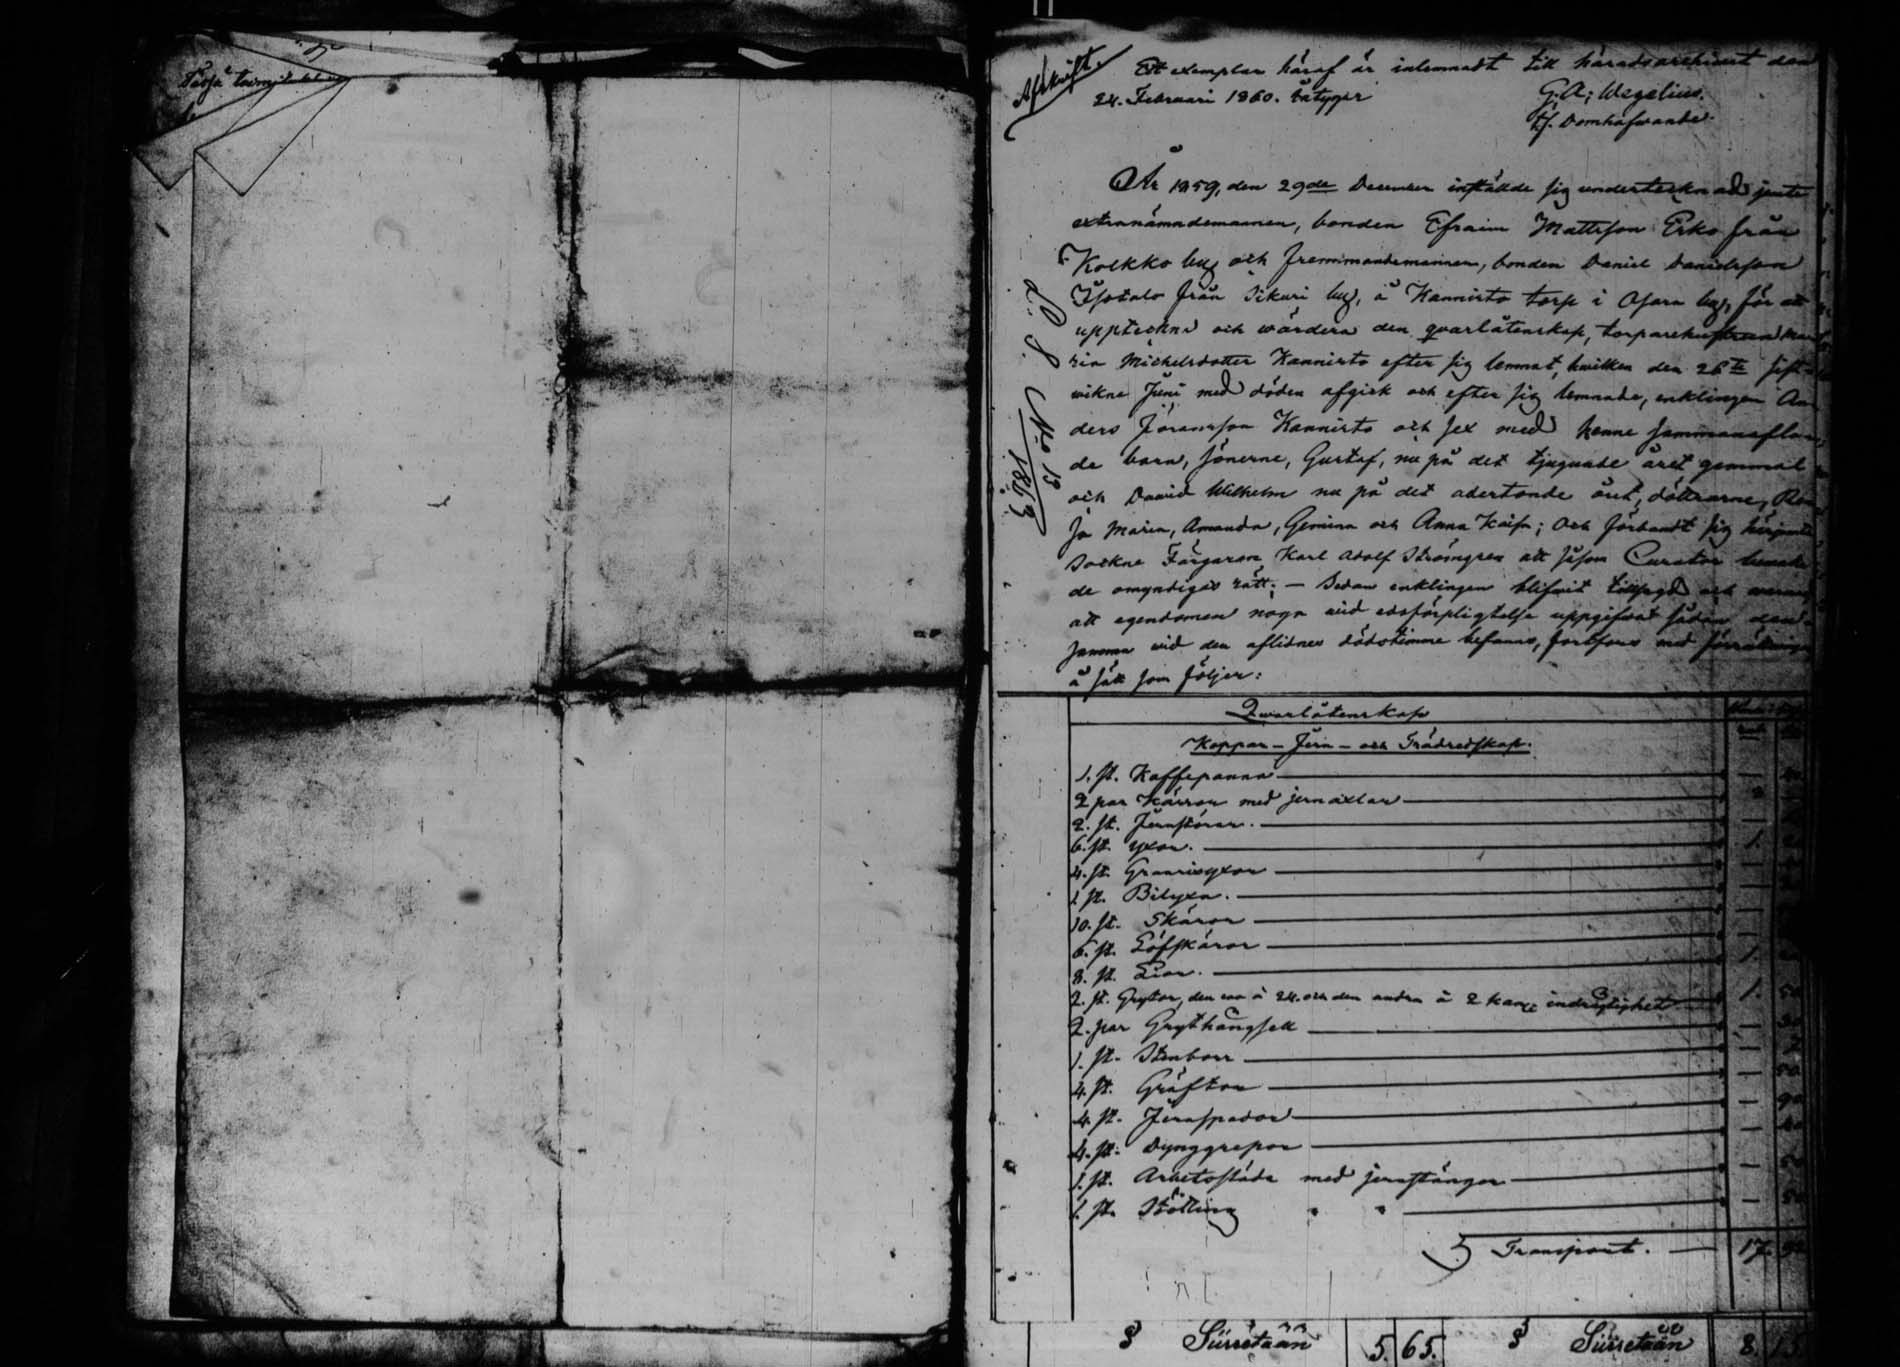 Afskrift.
Ett exemplar häraf är inlemnadt till häradsarchivet den
24. Februari 1860. betygar
G: A: Wegelius.
tf. Domhafvande.
År 1859, den 29de December inställde sig undertecknad jemte
extranämndemannen, bonden Efraim Mattsson Erko från
Kolkko by och fremmandemannen, bonden Daniel Danielsson
Isotalo från Sikuri by, å Kannisto torp i Ojara by, för att
uppteckna och wärdera den qvarlåtenskap, torparehustrun Ma
ria Michelsdotter Kannisto efter sig lemnat, hwilken den 26te sist
wikne Juni med döden afgick och efter sig lemnade, enklingen An
ders Jöransson Kannisto och sex med henne sammanaflade
de barn, sönerne, Gustaf, nu på det tjugunde året gammal
och David Wilhelm nu på det adertonde året, döttrarne,
Maria, Amanda, Gemina och Anna Kaisa; Och förbandt sig härjemte
Sockne Färgaren Karl Adolf Strömgren att såsom Curator bewaka
de omyndigas rätt; — Sedan enklingen blifwit tillsagd och
att egendomen noga wid edsförpligtelse uppgifwa sådan den
samma wid den aflidnes dödstimme befanns, fortfors med förrättningen
å sätt som följer:
No 15
1859
Qwarlåtenskap
Koppar - Jern - och Trädredskap.
1. st. Kaffepanna — —
2 par Kärror med jernaxlar —
2. st. Jernstörar. — —
6. st. yxor. — 1.
4. st. — —
1 st. Bilyxa. — —
10. st. Skäror — —
6. st. Löfskäror — —
8. st. Liar. — 1.
2. st. Grytor, den ena à 24. och den andra à 2 kan: indrägtighet — 1. 50
2. par Grythängsell — — 30
1. st. Stenborr — —
4. st. Gräftor — — 50
4. st. Jernspador — — 90
4. st. Dynggrepar — — 40
1. st. Arbetssläde med jernstänger — — 50
1. st. Stötting " " — — 50
Transport. — 17.
§ Siirretään 5. 65. § Siirretään 8. 15